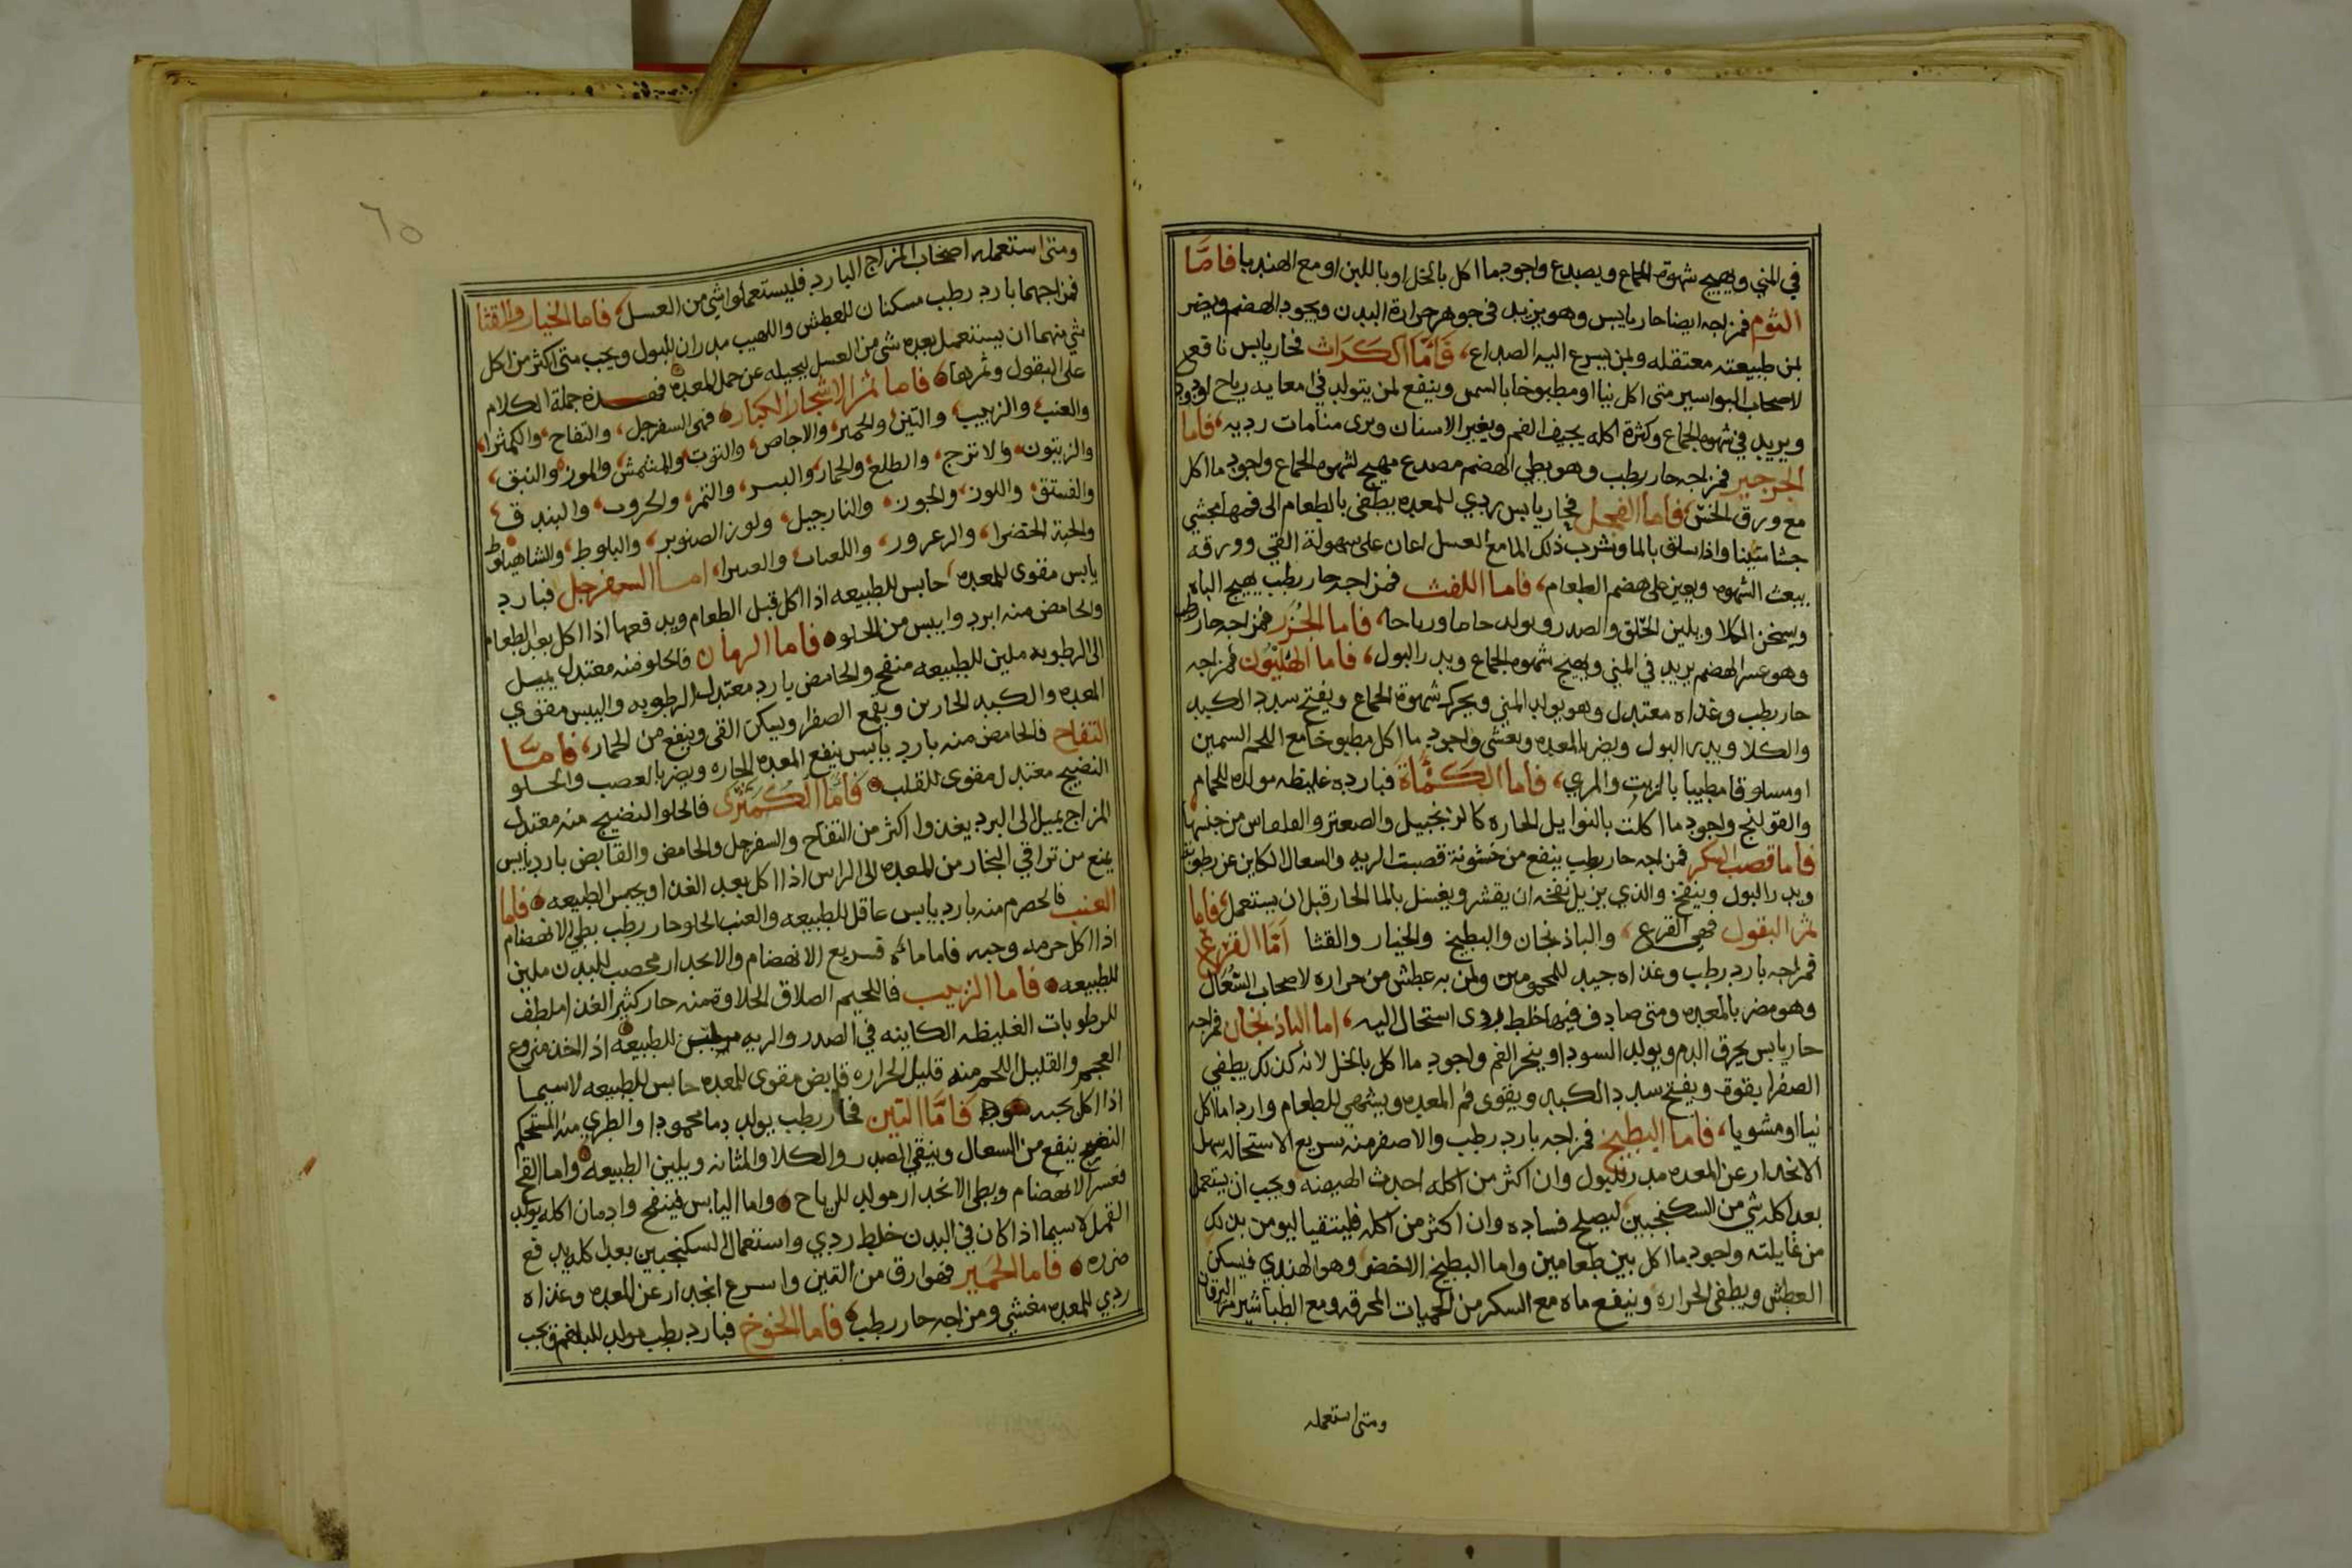 في المني ويهيج شهوة الجماع ويصدع واجود ما اكل بالخل او باللبن او مع الهندبا فامّا
الثوم فمزاجه ايضا حار يابس وهو يزيد في جوهر حرارة البدن ويجود الهضم ويضر
لمن طبيعته معتقله ولمن يسرع اليه الصداع، فَامَّا الكَرَاث فحار يابس نافع
لاصحاب البواسير متى اكل نيا او مطبوخا بالسمن وينفع لمن يتولد في امعايه رياح
ويزيد في شهوه الجماع وكثرة اكله يجيف الفم ويغير الاسنان ويرى منامات رديه، فاما
الجرجير فمزاجه حار رطب وهو بطي الهضم مصدع مهيج لشهوه الجماع واجود ما اكل
مع ورق الخسّ، فاما الفجل فحار يابس ردي للمعده يطفى بالطعام الى فمها مجشي
جشا منتنا واذا سلق بالما وشرب ذلك الما مع العسل اعان على سهولة القي وورقه
يبعث الشهوه ويعين على هضم الطعام، فاما اللفت فمزاجه حار رطب يهيج الباه
ويسخن الكلا ويلين الحلق والصدر ويولد ورياحا، فاما الجُزَر فمزاجه حار رطب
وهو عسر الهضم يزيد في المني ويهيج شهوه الجماع ويدر البول، فاما الهليون فمزاجه
حار رطب وغذاه معتدل وهو يولد المني ويحرك شهوة الجماع ويفتح سدد الكبد
والكلا ويدر البول ويضر بالمعده ويغشى واجود ما اكل مطبوخا مع اللحم السمين
او مسلوقا مطيبا بالزيت والمري، فاما الكَمْاة فبارده غليظه مولده للخام
والقولنج واجود ما اكلت بالتوابل الحاره كالزنجبيل والصعتر والفلفاس من جنسها
فاما قصب السكر فمزاجه حار رطب ينفع من خشونة قصبت الريه والسعال الكاين عن رطوبة
ويدر البول وينفخ والذي يزيل نفخه ان يقشر ويغسل بالما الحار قبل ان يستعمل، فاما
ثمر البقول فهي القرع، والباذنجان والبطيخ والخيار والقثا امّا القرع
فمزاجه بارد رطب وغذاه جيد للمحمومين ولمن به عطش من حراره لاصحاب السُّعَال
وهو مضر بالمعده ومتى صادف فيها خلط ردى استحال اليه، اما الباذنجان فمزاجه
حار يابس يحرق الدم ويولد السودا ويبخر الفم واجود ما اكل بالخل لانه كذلك يطفي
الصفرا بقوة ويفتح سدد الكبد ويقوى فم المعده ويشهي للطعام واردا ما اكل
نيا او مشويا، فاما البطيخ فمزاجه بارد رطب والاصفر منه سريع الاستحاله سهل
الانحدار عن المعده مدر للبول وان اكثر من اكله احدث الهيضه ويجب ان يستعمل
بعد اكله شي من السكنجبين ليصلح فساده وان اكثر من اكله فليتقيا ليومن بذلك
من غايلته واجود ما اكل بين طعامين واما البطيخ الاخضر وهو الهندي فيسكن
العطش ويطفي الحراره وينفع ماه مع السكر من الحميات المحرقه ومع الطباشير من اليرقان
ومتى استعمله
٦٥
ومتى استعمله اصحاب المزاج البارد فليستعملوا شي من العسل، فاما الخيار والقثا
فمزاجهما بارد رطب مسكنان للعطش واللهيب مدران للبول ويجب متى اكثر من اكل
شي منهما ان يستعمل بعده شي من العسل ليحيله عن حمل المعده فهذه جملة الكلام
على البقول وثمرها فاما ثمر الاشجار الكبار فهى السفرجل، والتفاح، والكمثرا،
والعنب والزبيب، والتين والجميز، والاجاص، والتوت والمشمش، والموز، والنبق،
والزيتون، والاترج، والطلع، والجمار، والبسر، والتمر، والخروب، والبندق،
والفستق، واللوز، والجوز، والنارجيل، ولوز الصنوبر، والبلوط، والشاهبلوط
والحبة الخضرا، والزعرور، امـا السفرجل فبارد
يابس مقوى للمعده، حابس للطبيعه اذا اكل قبل الطعام ويدفعها اذا اكل بعد الطعام
والحامض منه ابرد وايبس من الحلو فاما الرمان فالحلو منه معتدل يميل
الى الرطوبه ملين للطبيعه منفخ والحامض بارد معتدل الرطوبه واليبس مقوي
المعده والكبد الحارين ويقمع الصفرا ويسكن القى وينفع من الخمار، فامّا
التفاح فالحامض منه بارد يابس ينفع المعده الحاره ويضر بالعصب والحلو
النضيج معتدل مقوى للقلب فَامَّا الكُمَثْرَى فالحلو النضيج منه معتدل
المزاج يميل الى البرد يغذوا اكثر من التفاح والسفرجل والحامض والقابض بارد يابس
يمنع من تراقي البخار من المعده الى الراس اذا اكل بعد الغذا ويحبس الطبيعه فاما
العنب فالحصرم منه بارد يابس عاقل للطبيعه والعنب الحلو حار رطب بطي الانهضام
اذا اكل جرمه وحبه فاما ماه فسريع الانهضام والانحدار مخصب للبدن ملين
للطبيعه فاما الزبيب فاللحيم الصادق الحلاوة منه حار كثير الغذا ملطف
للرطوبات الغليظه الكاينه في الصدر والريه ملين للطبيعه اذا اخذ منزوع
العجم والقليل اللحم منه قليل الحراره قابض مقوى للمعده حابس للطبيعه لاسيما
اذا اكل بحبه فَامَّا التين فحار رطب يولد دما محمودا والطري منه المستحكم
النضج ينفع من السعال وينقي الصدر والكلا والمثانه ويلين الطبيعه واما الفج
فعسر الانهضام وبطى الانحدار مولد للرياح واما اليابس فينفخ وادمان اكله يولد
القمل لاسيما اذا كان في البدن خلط ردي واستعمال السكنجبين بعد اكله يدفع
ضرره فاما الجُميز فهو ارق من التين واسرع انحدار عن المعده وغذاه
ردي للمعده مغشي ومزاجه حار رطب فاما الخوخ فبارد رطب مولد للبلغم ويجب